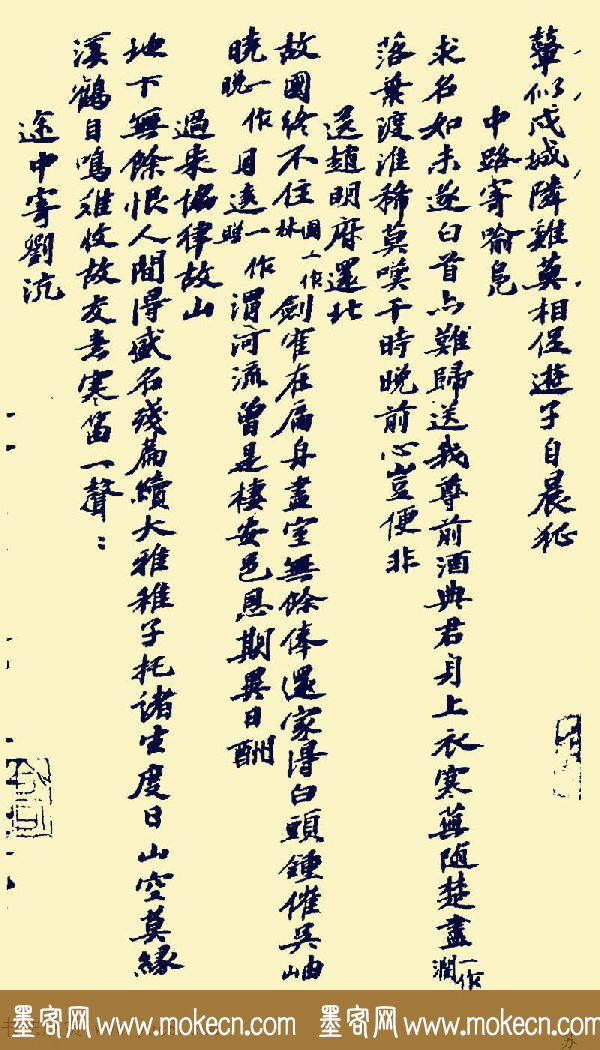 鼙似戍城隣雞莫相促遊子自晨征
中路寄喻鳧
求名如未遂白首亦難歸送我尊前酒典君身上衣寒蕪隨楚盡一作濶
落葉渡淮稀莫嘆干時晚前心豈便非
送趙明府還北
故國終不住國一作林劍隺在扁舟盡室無餘俸還家得白頭鍾催吳岫
曉一作晚月遶一作照渭河流曾是棲安邑恩期異日酬
過朱協律故山
地下無餘恨人間得盛名殘篇續大雅稚子托諸生度日山空莫緣
溪鶴自鳴難收故友意寒笛一聲：
途中寄劉沆
墨客网 www.mokecn.com 墨客网 www.mokecn.com